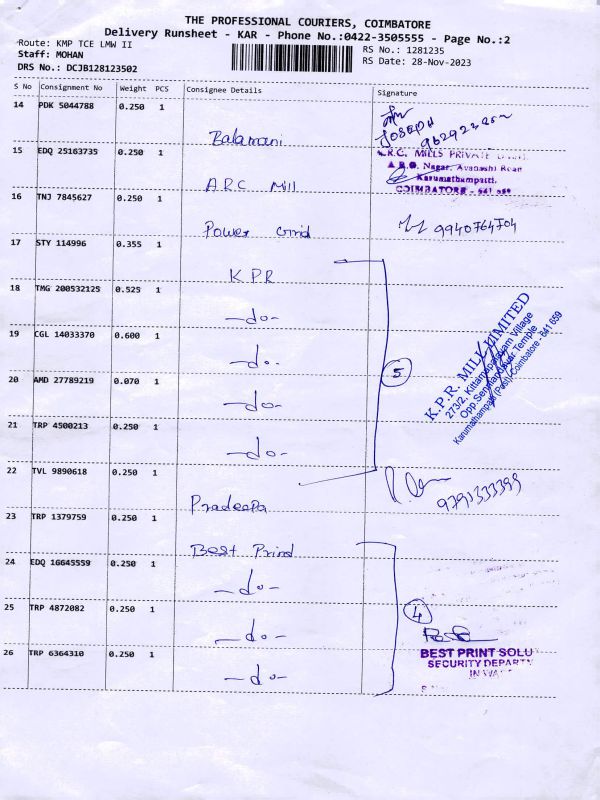 THE PROFESSIONAL COURIERS, COIMBATORE
Delivery Runsheet - KAR - Phone No.:0422-3505555 - Page No.:2
Route: KMP TCE LMW II
RS No.: 1281235
Staff: MOHAN
RS Date: 28-Nov-2023
DRS No.: DCJB128123502
S No Consignment No Weight PCS Consignee Details Signature
14 PDK 5044788 0.250 1 Balamani
JOSEPH
15 EDQ 25163735 0.250 1 A.R.C Mill
A.R.C. MILLS PRIVATE
A.R.C. Nagar, Avanashi Road
Karumathampatti,
COIMBATORE - 641 659
16 TNJ 7845627 0.250 1 Power Grid
9940764704
17 STY 114996 0.355 1 K.P.R
18 TMG 200532125 0.525 1 -do-
19 CGL 14033370 0.600 1 -do-
20 AMD 27789219 0.070 1 -do-
21 TRP 4500213 0.250 1 -do-
5
K.P.R. MILL LIMITED
273/2, Kittampalayam Village
Opp. Temple
Karumathampatti (Post), Coimbatore - 641 659
22 TVL 9890618 0.250 1 Pradeepa
9791333399
23 TRP 1379759 0.250 1 Best Prind
24 EDQ 16645559 0.250 1 -do-
25 TRP 4872082 0.250 1 -do-
26 TRP 6364310 0.250 1 -do-
4
BEST PRINT SOLU
SECURITY DEPART